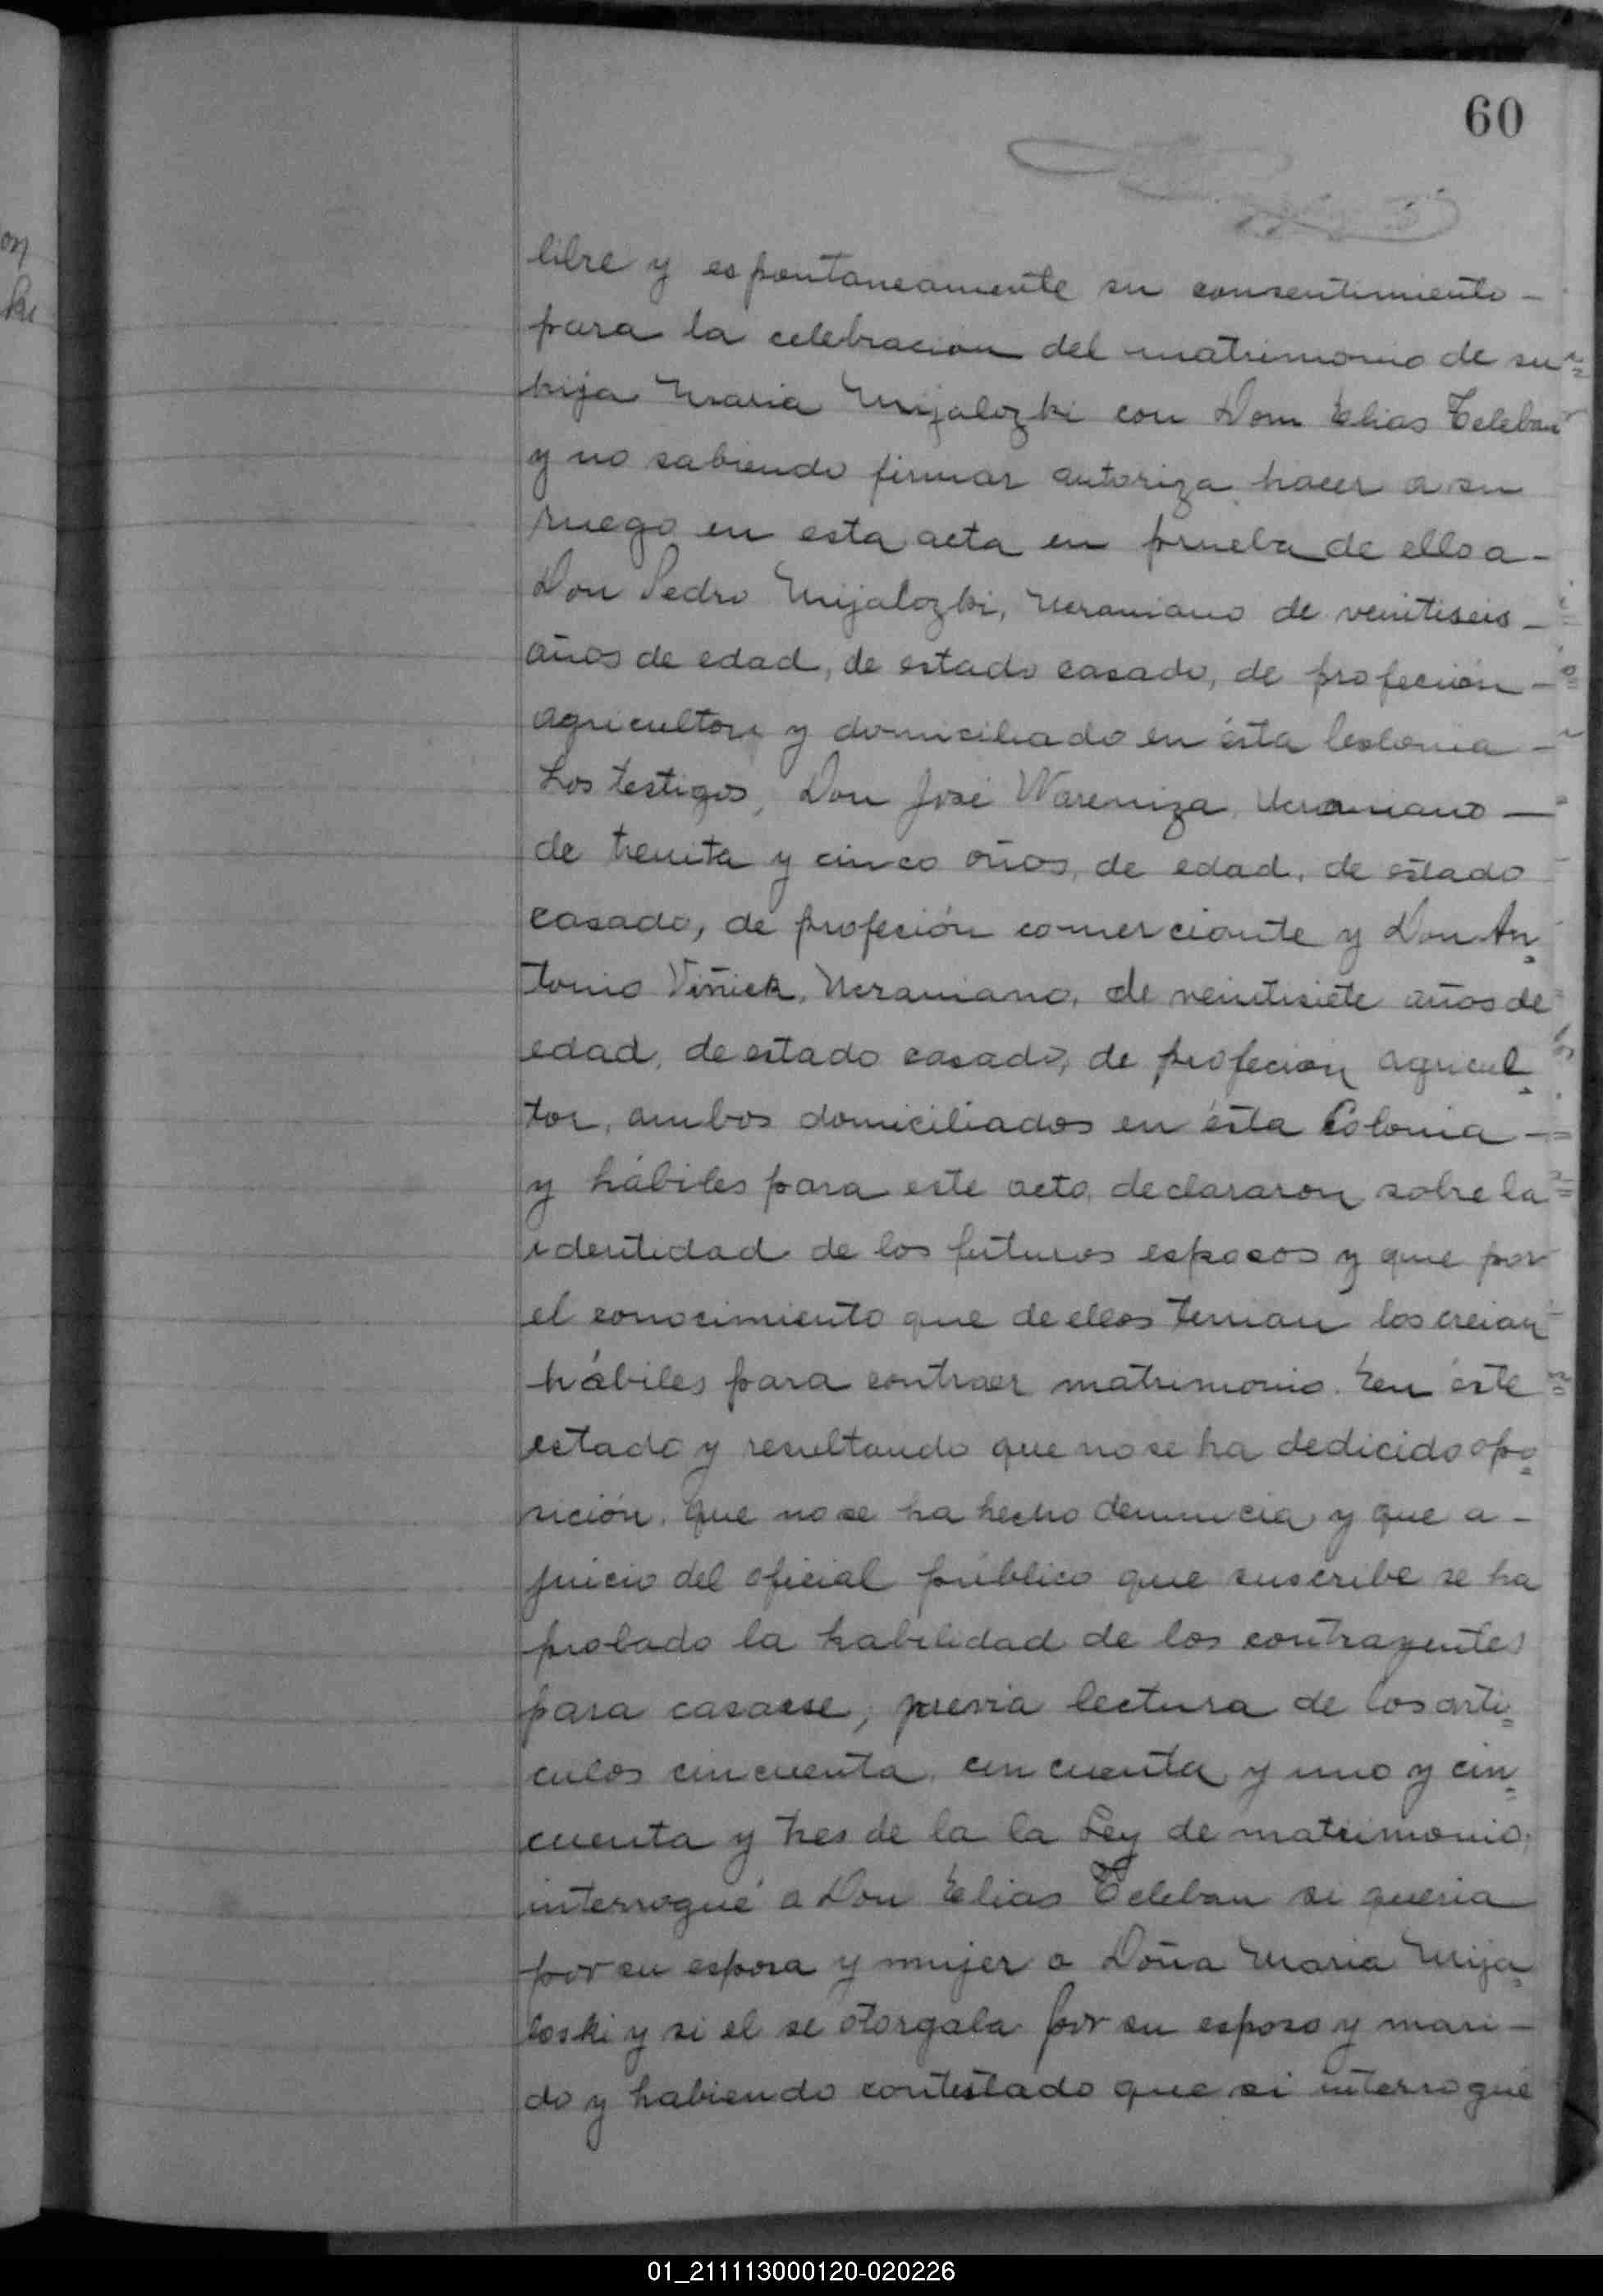 60
libre y espontaneamente su consentimiento -
para la celebracion del matrimonio de su
hija Maria Mijalozki con Don Elias Teleban
y no sabiendo firmar autoriza hacer a su
ruego en esta acta en prueba de ello a -
Don Pedro Mijalozki, Ucraniano de veintiseis -
años de edad, de estado casado, de profeción -
agricultor y domiciliado en ésta Colonia -
Los testigos, Don José Wareniza, Ucraniano -
de treinta y cinco años, de edad, de estado
casado, de profesión comerciante y Don An=
tonio Viñick, Ucraniano, de veintisiete años de
edad, de estado casado, de profecion agricul=
tor, ambos domiciliados en ésta Colonia -
y hábiles para este acto, declararon sobre la
identidad de los futuros esposos y que por
el conocimiento que de ellos tenian los creian
hábiles para contraer matrimonio. En éste
estado y resultando que no se ha dedicido opo=
sición, que no se ha hecho denuncia y que a -
juicio del oficial público que suscribe se ha
probado la habilidad de los contrayentes
para casarse, previa lectura de los arti=
culos cincuenta, cincuenta y uno y cin=
cuenta y tres de la la Ley de matrimonio,
interrogué a Don Elias Teleban si queria
por su esposa y mujer a Doña Maria Mija=
loski y si el se otorgala por su esposo y mari -
do y habiendo contestado que si interrogué
01_211113000120-020226